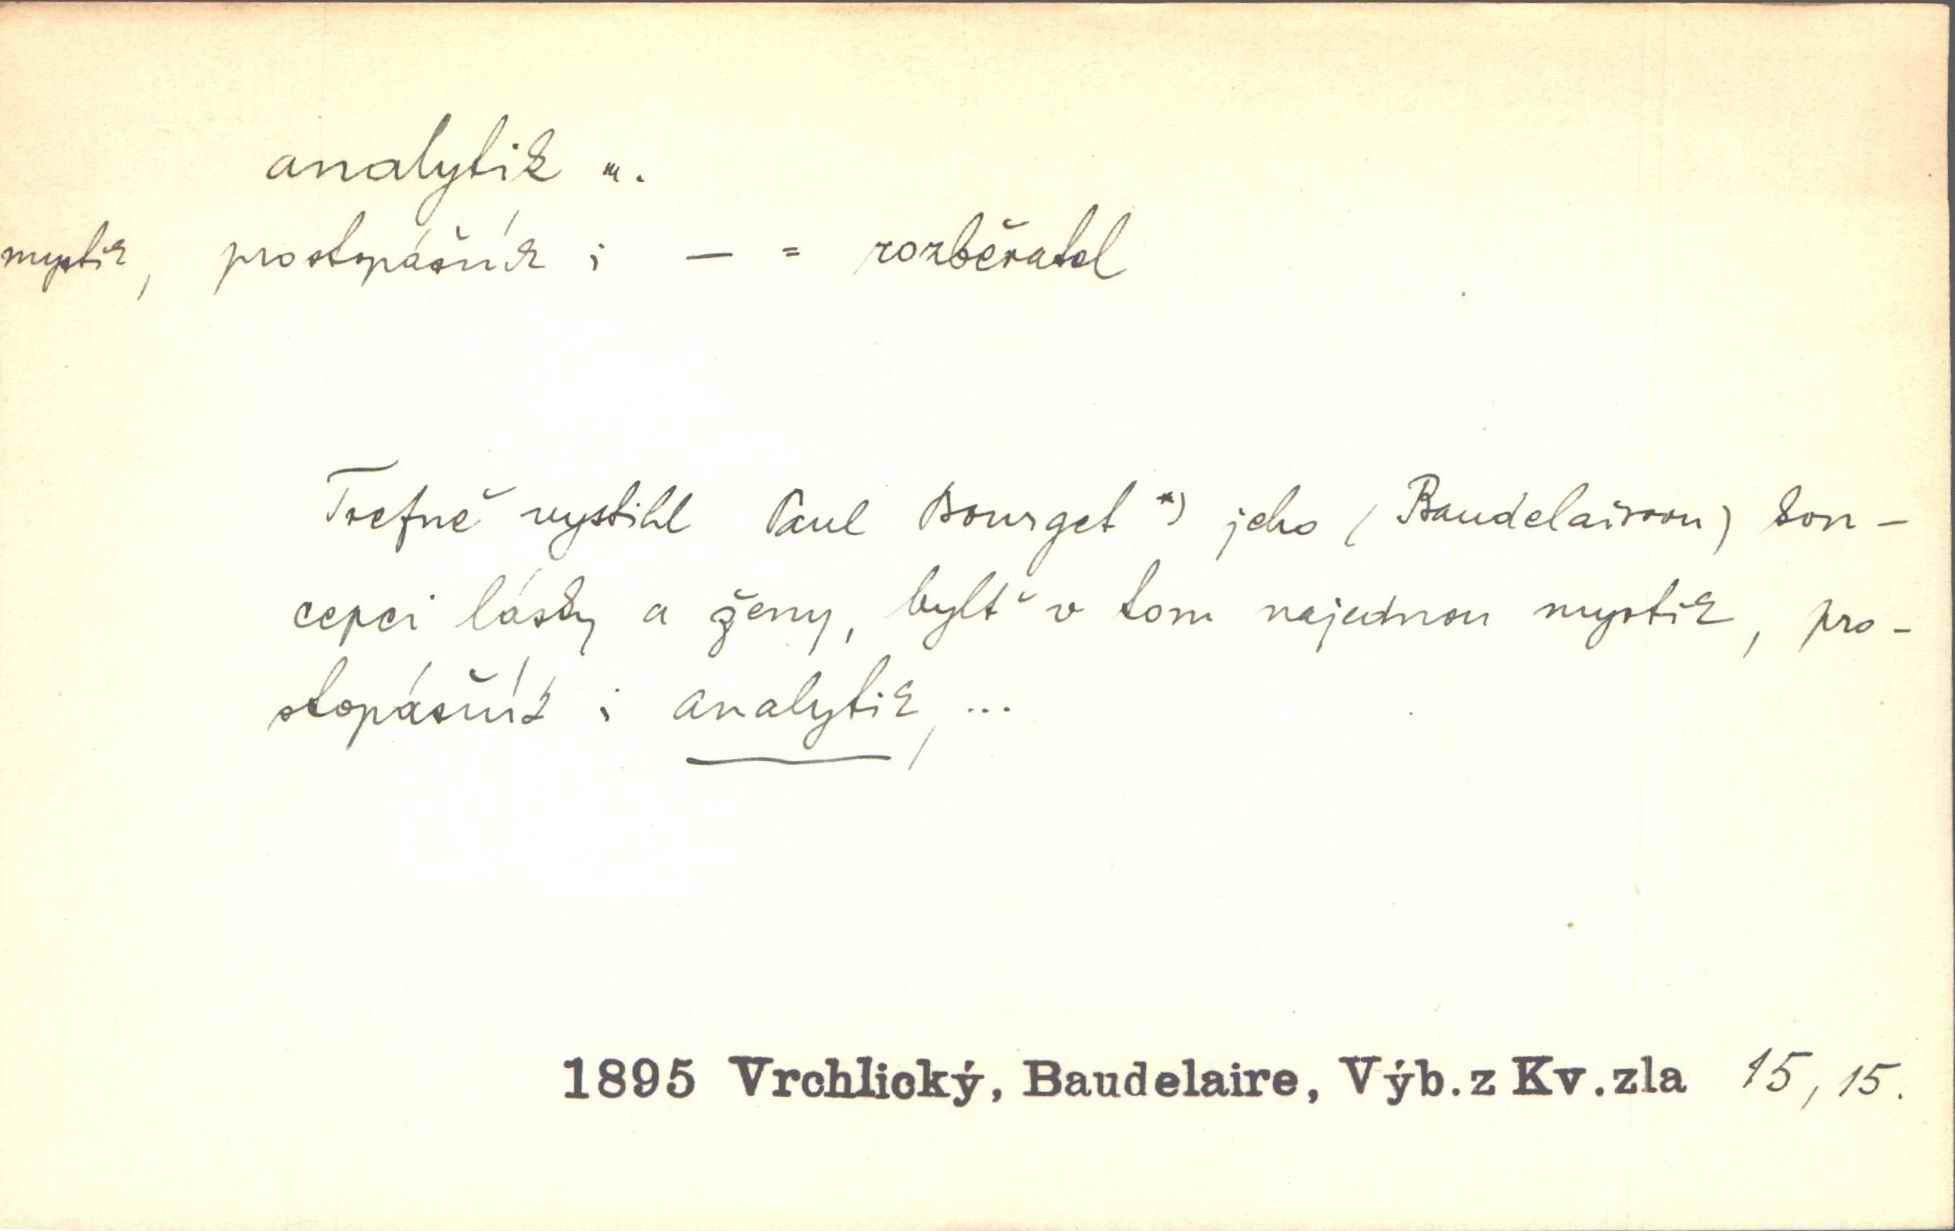 analytik m.
mystik, prostopášník i — = rozběratel
Trefně vystihl Paul Bourget *) jeho (Baudelairovu) kon-
cepci lásky a ženy, bylť v tom najednou mystik, pro-
stopášník i analytik, ...
1895 Vrchlický, Baudelaire, Výb. z Kv. zla 15, 15.